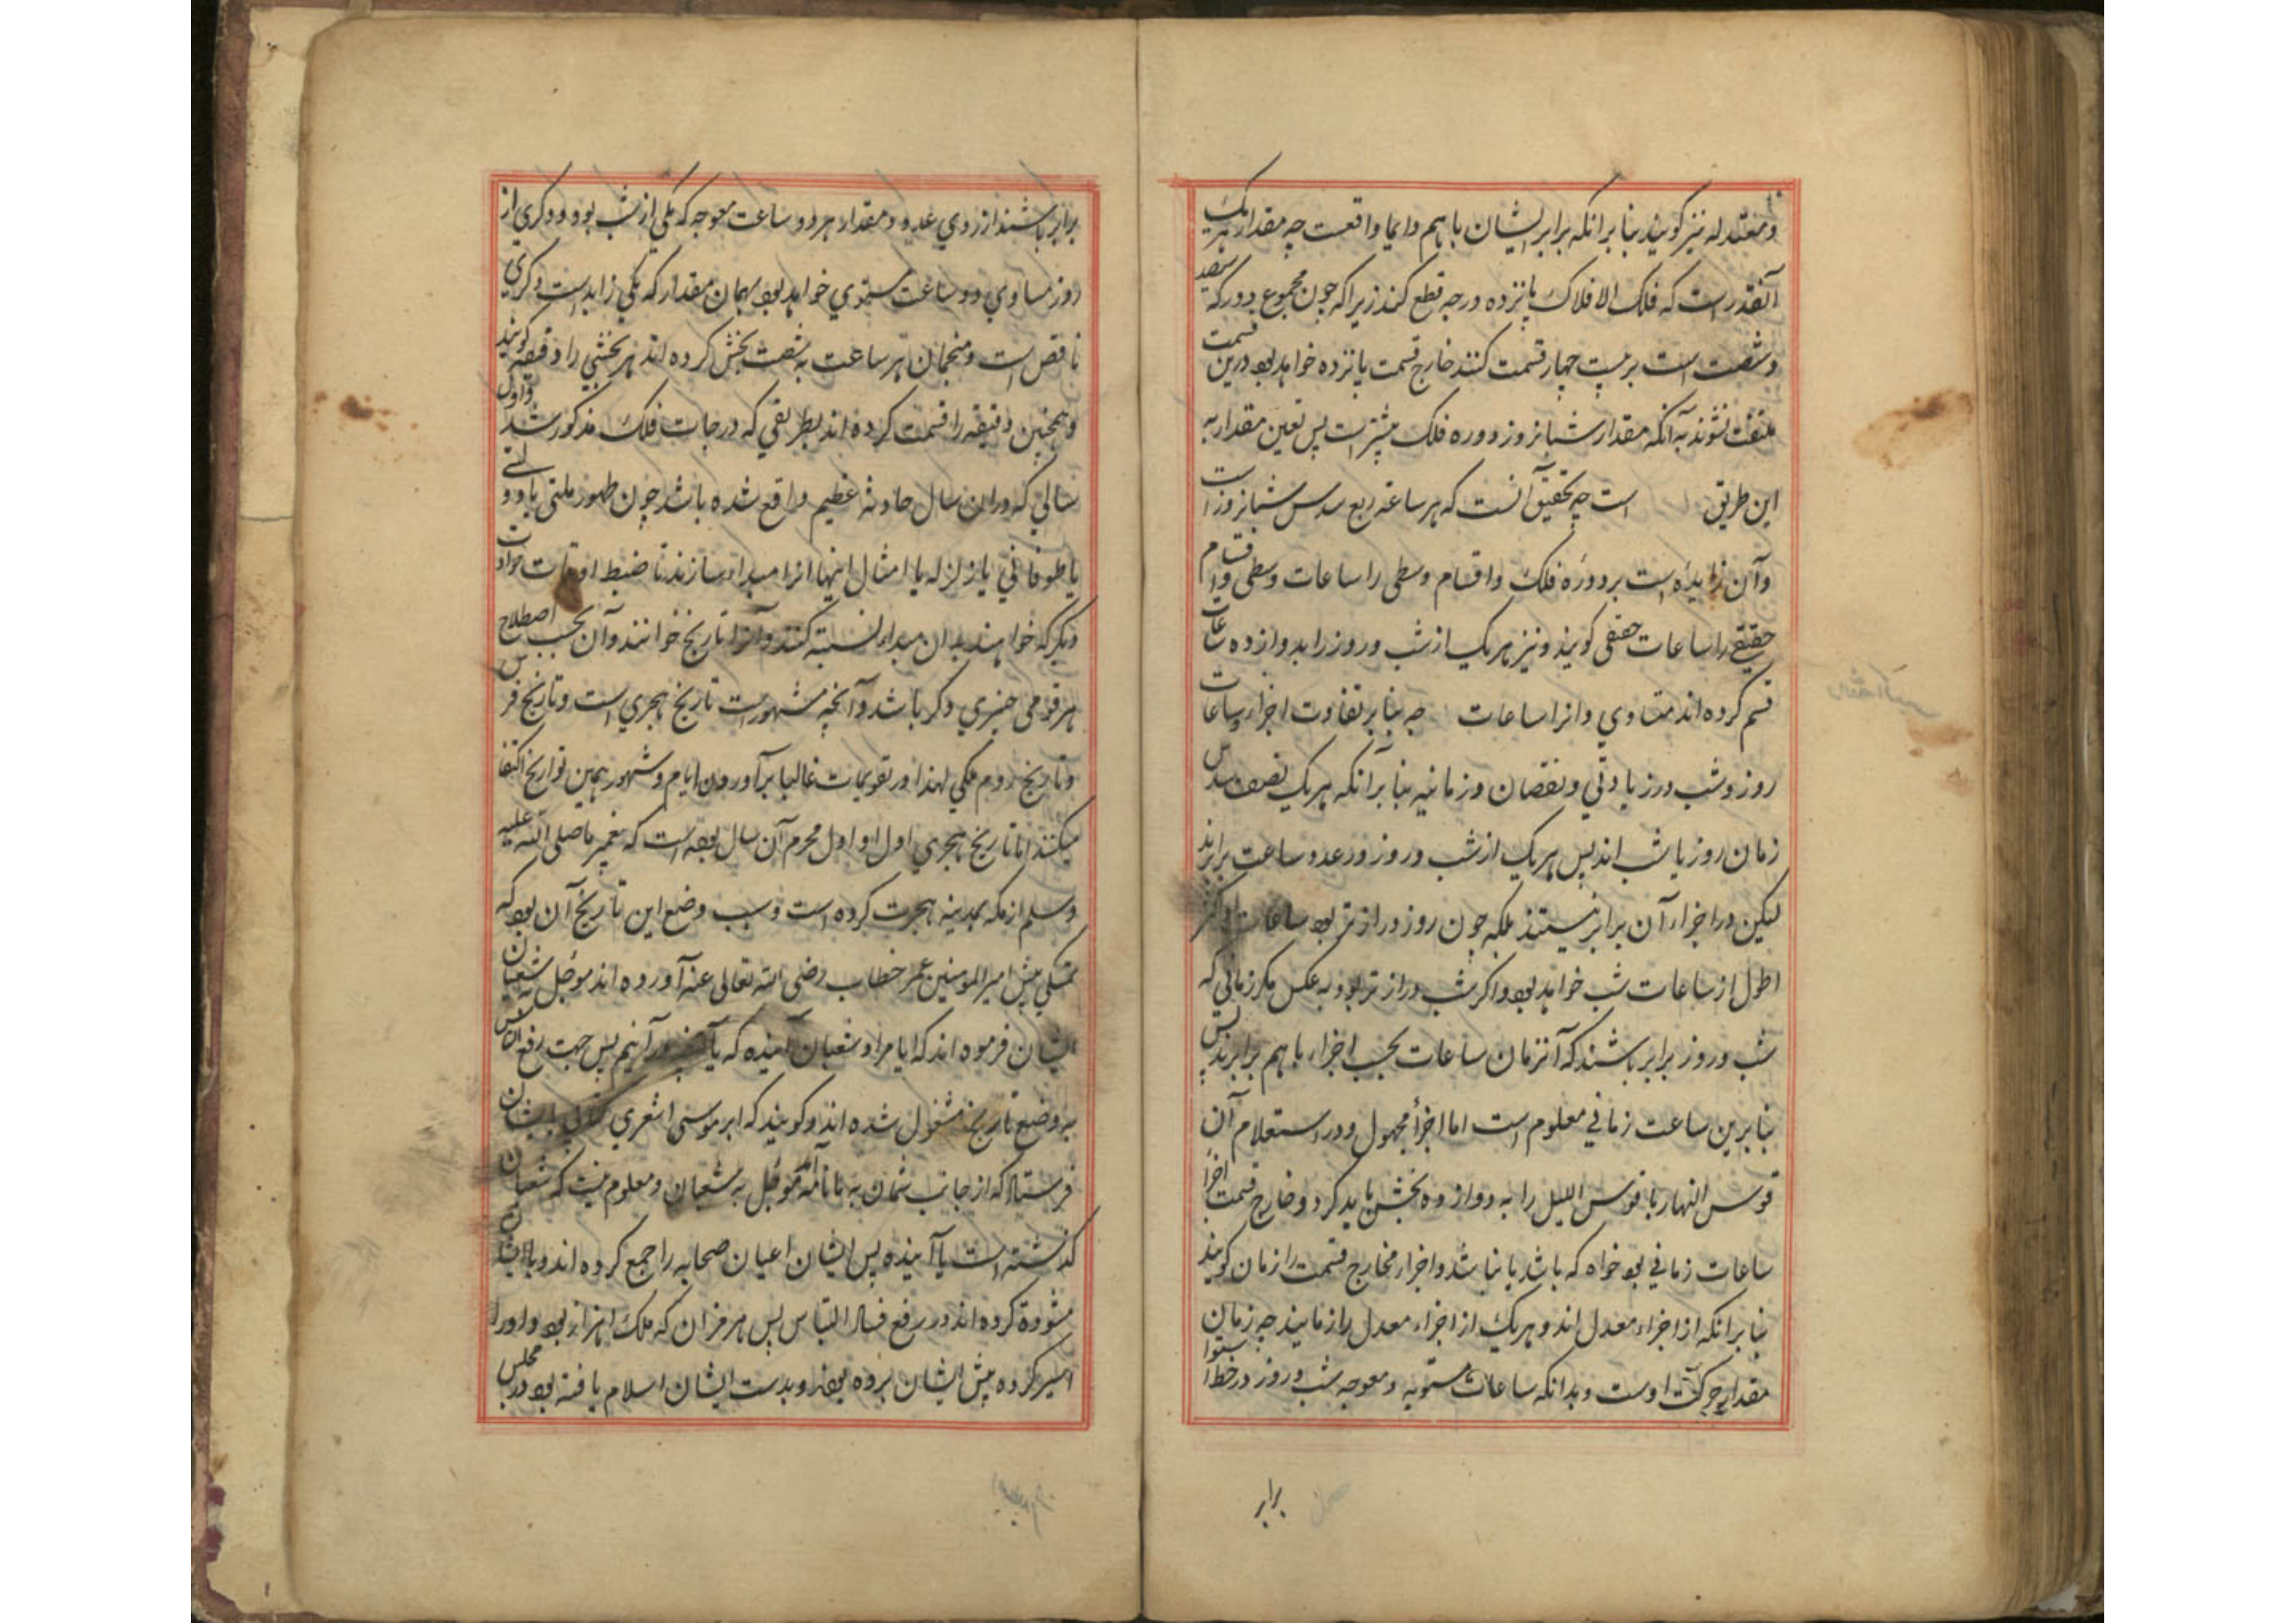 و معتدله نیز کویند بنا برانکه برابر ایشان با هم دایما واقعست چه مقدار هر یک
آنقدر است که فلک الافلاک پانزده درجه قطع کند زیرا که چون مجموع دور که سیصد
و شصت است بر بیست چهار قسمت کنند خارج قسمت پانزده خواهد بود درین قسمت
ملتفت نشوند به آنکه مقدار شبانروز دوره فلک بیشتر است پس تعین مقدار به
این طریق است چه تحقیق آنست که هر ساعة ربع سدس شبانروز است
و آن زایده است بر دورهٔ فلک و اقسام وسطی را ساعات وسطی و اقسام
حقیقی را ساعات حقیقی کویند و نیز هریک از شب و روز را بدوازده ساعات
قسم کرده اند متساوی و انرا ساعات چه بنا بر تفاوت اجزاء ساعات
روز و شب در زیادتی و نقصان و زمانیه بنا بر آنکه هریک نصف سدس
زمان روز یا شب اند پس هریک از شب و روز در عدد ساعت برابرند
لیکن در اجزاء آن برابر نیستند بلکه چون روز دراز تر بود ساعات او
اطول از ساعات شب خواهد بود و اکر شب دراز تر بود به عکس مکر زمانی که
شب و روز برابر باشند که آنزمان ساعات بحسب اجزاء با هم برابرند پس
بنا برین ساعت زمانی معلوم است اما اجزأ مجهول و در استعلام آن
قوس النهار یا قوس اللیل را به دوازده بخش باید کرد و خارج قسمت اجزا
ساعات زمانی بود خواه که باشد یا نباشد و اجزاء مخارج قسمت را زمان کویند
بنا برانکه از اجزاء معدل اند و هریک از اجزاء معدل را زمانیند چه زمان
مقدار حرکت اوست و بدانکه ساعات مستویه و معوجه شب و روز در خط استوا
برابر
برابر باشند از روی عدد و مقدار هر دو ساعت معوجه که یکی از شب بود و دکری از
روز مساوی دو ساعت مستوی خواهد بود بهمان مقدار که یکی زاید است دکری
ناقص است و منجمان هر ساعت به شصت بخش کرده اند هر بخشی را دقیقه کویند
و همچنین دقیقه را قسمت کرده اند بطریقی که در درجات فلک مذکور شد و اول
سالی که دران سال حادثه عظیم واقع شده باشد چون ظهور ملتی یا دولتے
یا طوفانی یا زلزله یا امثال اینها انرا مبداء سازند تا ضبط اوقات حوادث
دیکر که خواهند بدان مبداء نسبة کنند و آنرا تاریخ خوانند و آن بحسب اصطلاح
هر قومی چیزی دکر باشد و آنچه مشهور است تاریخ هجری است و تاریخ فرس
و تاریخ روم ملکی لهذا در تقویمات غالبا بر آوردن ایام و شهور همین تواریخ اکتفا
میکنند اما تاریخ هجری اول او اول محرم آن سال بوده است که پیغمبر ما صلی الله علیه
وسلم از مکه بمدینه هجرت کرده است و سبب وضع این تاریخ آن بود که
تمسکی پیش امیر المومنین عمر خطاب رضی الله تعالی عنه آورده اند موجل به شعبان
ایشان فرموده اند که ایا مراد شعبان آینده که یا در آنیم پس جهت رفع التباس
به وضع تاریخ مشغول شده اند و کویند که ابو موسی اشعری کتابی بایشان
فرستاد که از جانب شمان به ما نامه موجل به شعبان و معلوم نیست که شعبان
کذشته است یا آینده پس ایشان اعیان صحابه را جمع کرده اند و با ایشان
مشورة کرده اند در رفع فساد التباس پس هرمزان که ملک اهواز بود و او را
اسیر کرده پیش ایشان برده بودند و بدست ایشان اسلام یافته بود در مجلس